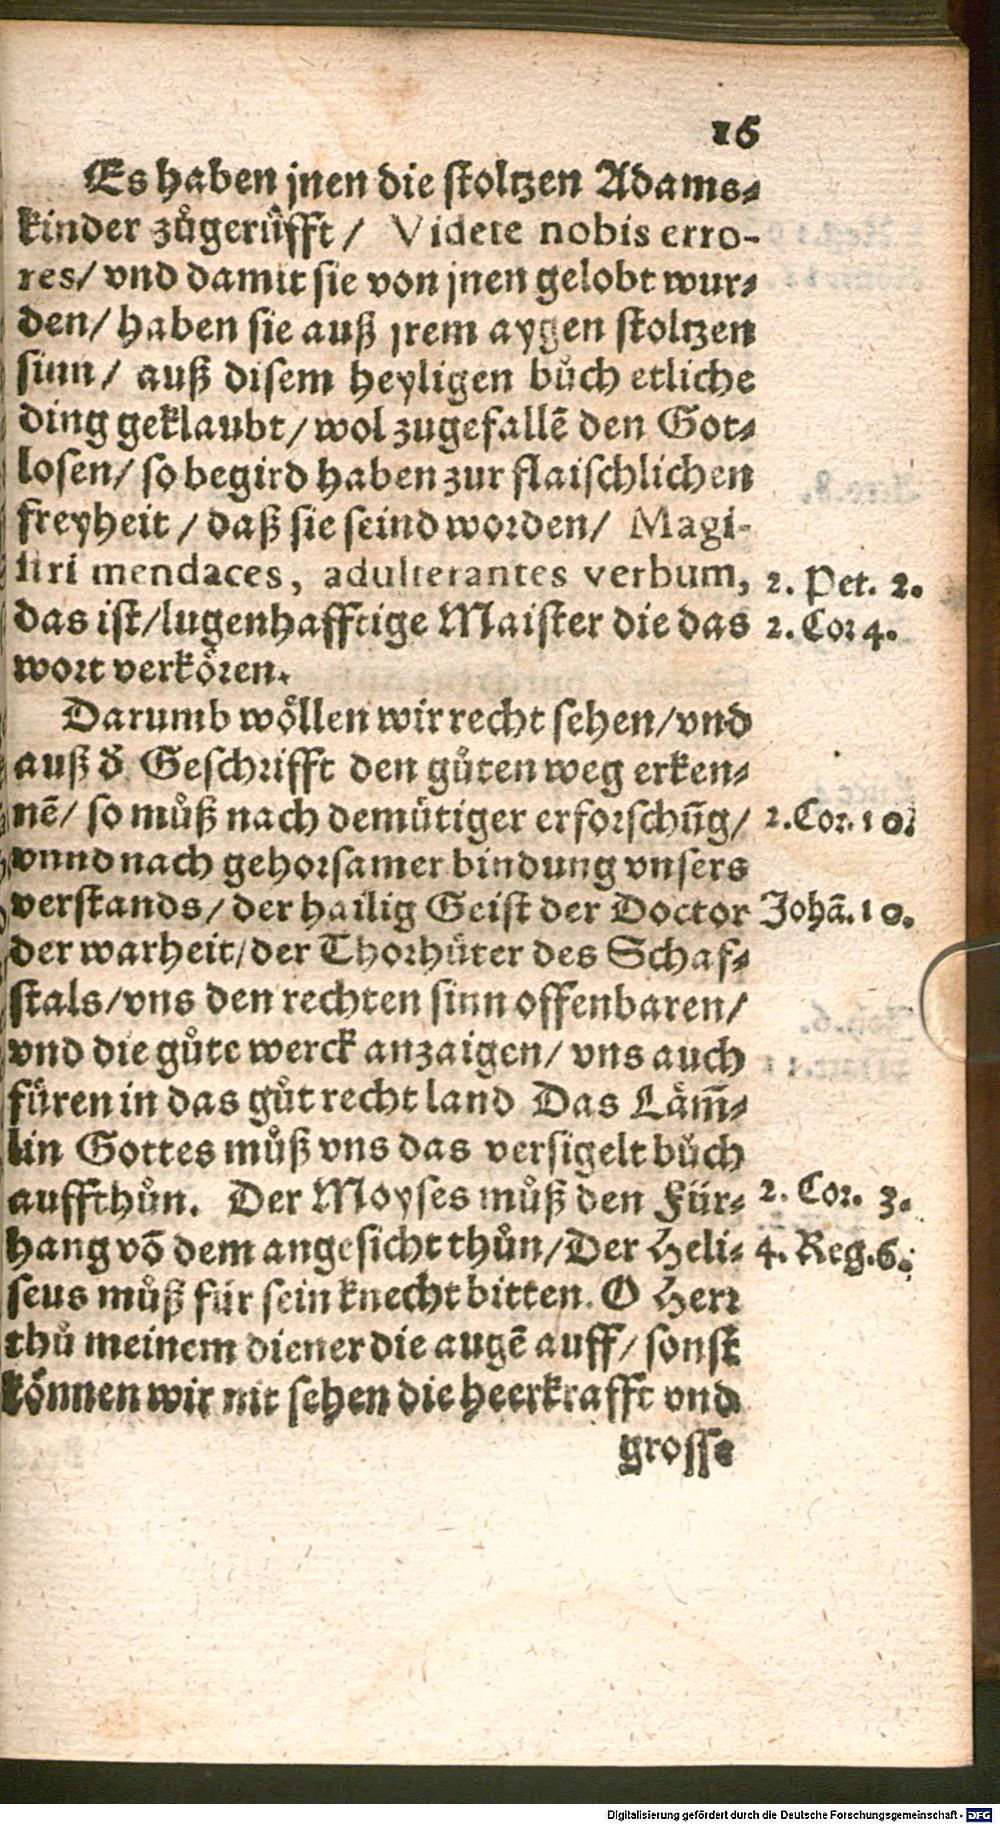 16
Es haben jnen die stoltzen Adams-
kinder zůgerüfft / Videte nobis erro-
res/ vnd damit sie von jnen gelobt wur-
den/ haben sie auß jrem aygen stoltzen
sinn / auß disem heyligen bůch etliche
ding geklaubt/ wol zugefallē den Got-
losen/ so begird haben zur flaischlichen
freyheit / daß sie seind worden/ Magi-
stri mendaces, adulterantes verbum, 2. Pet. 2.
das ist/lugenhafftige Maister die das 2. Cor 4.
wort verkören.
Darumb wöllen wir recht sehen/vnd
auß d̄ Geschrifft den gůten weg erken-
nē/ so můß nach demütiger erforschūg/ 2.Cor.10.
vnnd nach gehorsamer bindung vnsers
verstands/ der hailig Geist der Doctor Johā.10.
der warheit/der Thorhüter des Schaf-
stals/vns den rechten sinn offenbaren/
vnd die gůte werck anzaigen/ vns auch
füren in das gůt recht land Das Läm̄-
lin Gottes můß vns das versigelt bůch
auffthůn. Der Moyses můß den Für- 2. Cor. 3.
hang vō dem angesicht thůn/Der Heli- 4. Reg.6.
seus můß für sein knecht bitten. O Herr
thů meinem diener die augē auff/ sonst
können wir nit sehen die heerkrafft vnd
grosse
Digitalisierung gefördert durch die Deutsche Forschungsgemeinschaft - DFG